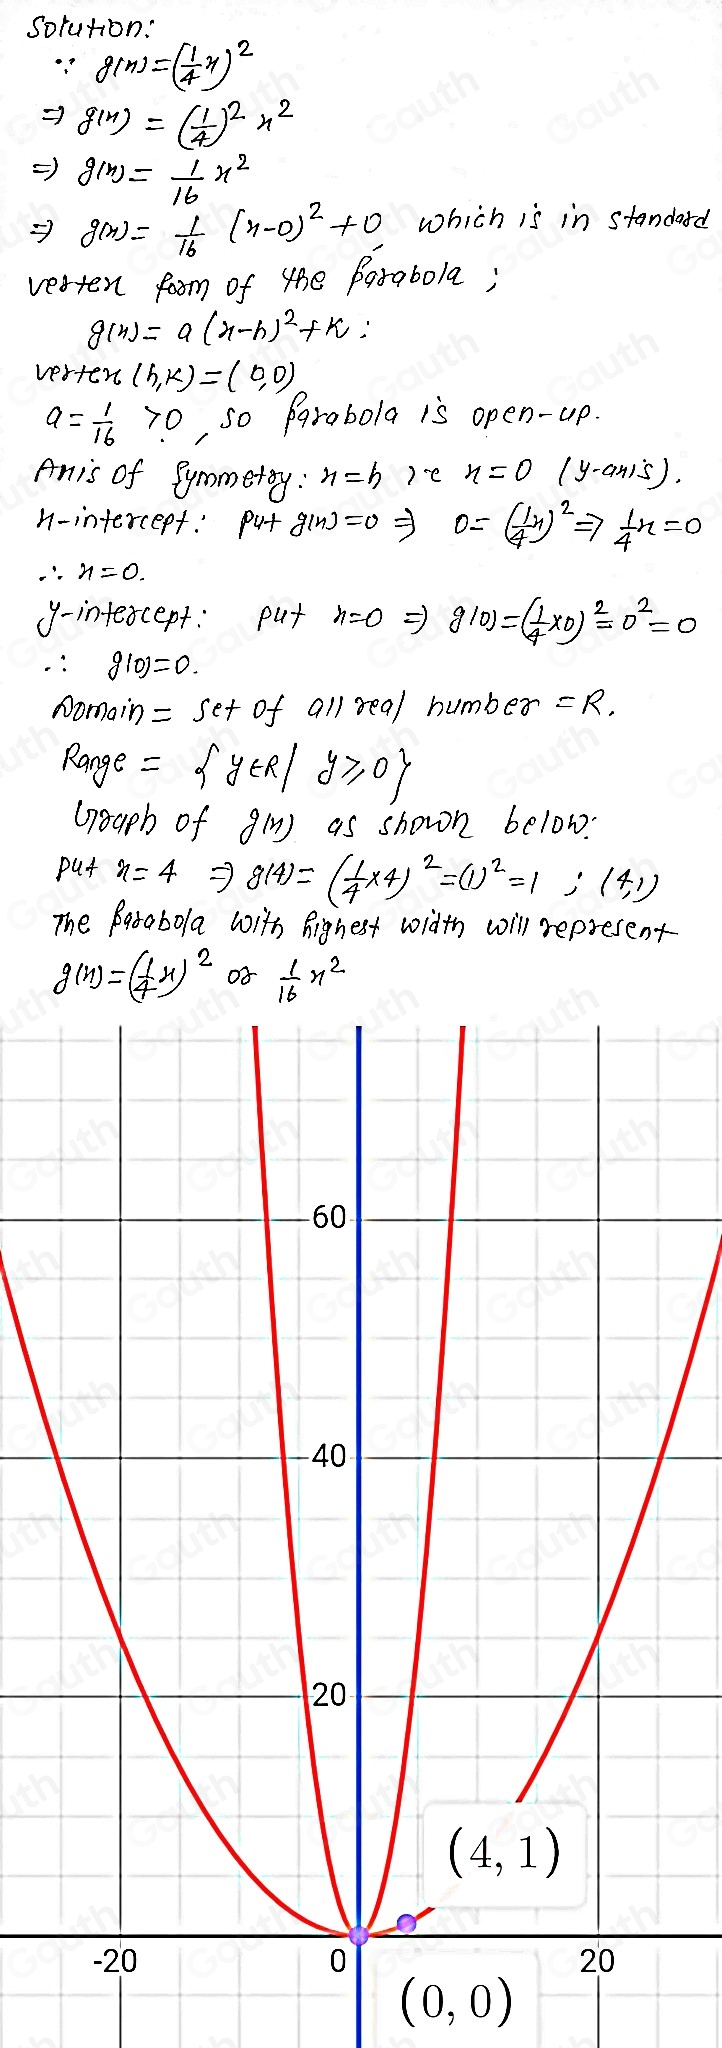 Solution:
∵ g(x)=(1/4 x)^2
⇒ g(x) = (1/4)^2 x^2
⇒ g(x) = 1/16 x^2
⇒ g(x) = 1/16 (x-0)^2 + 0, which is in standard
vertex form of the parabola ;
g(x) = a (x-h)^2 + K :
vertex (h,K) = (0,0)
a = 1/16 >0, so parabola is open-up.
Axis of symmetry: x=h ie x=0 (y-axis).
x-intercept: put g(x)=0 ⇒ 0=(1/4 x)^2 ⇒ 1/4 x=0
∴ x=0.
y-intercept: put x=0 ⇒ g(0)=(1/4×0)^2=0^2=0
∴ g(0)=0.
Domain = set of all real number = R.
Range = {y∈R/ y≥0}
Graph of g(x) as shown below:
put x=4 ⇒ g(4)=(1/4×4)^2=(1)^2=1 ; (4,1)
The parabola with highest width will represent
g(x)=(1/4 x)^2 or 1/16 x^2
60
40
20
(4, 1)
-20 0 20
(0, 0)